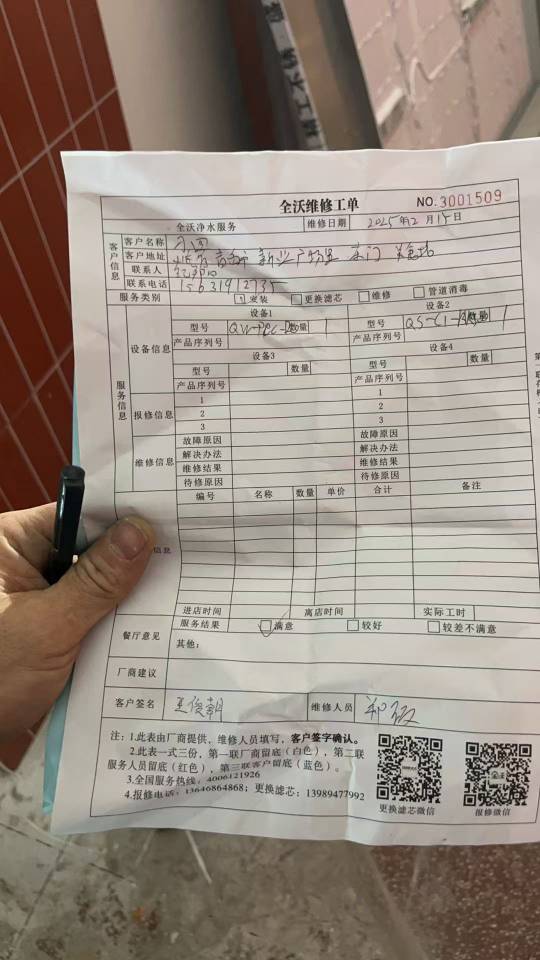 全沃维修工单 NO.3001509
全沃净水服务 维修日期 2025年12月15日
客户信息
客户名称
客户地址
联系人
联系电话 15631912735
服务类别 安装 更换滤芯 维修 管道消毒
服务信息
设备信息 设备1 设备2
型号 数量 1 型号 数量 1
产品序列号 产品序列号
设备3 设备4
型号 数量 型号 数量
产品序列号 产品序列号
报修信息 1 1
2 2
3 3
维修信息 故障原因 故障原因
解决办法 解决办法
维修结果 维修结果
待修原因 待修原因
信息 编号 名称 数量 单价 合计 备注
进店时间 离店时间 实际工时
餐厅意见 服务结果 满意 较好 较差不满意
其他:
厂商建议
客户签名 维修人员
注:1.此表由厂商提供,维修人员填写,客户签字确认。
2.此表一式三份,第一联厂商留底(白色),第二联
服务人员留底(红色),第三联客户留底(蓝色)。
3.全国服务热线:4006121926
4.报修电话:13646864868;更换滤芯:13989477992
更换滤芯微信 报修微信